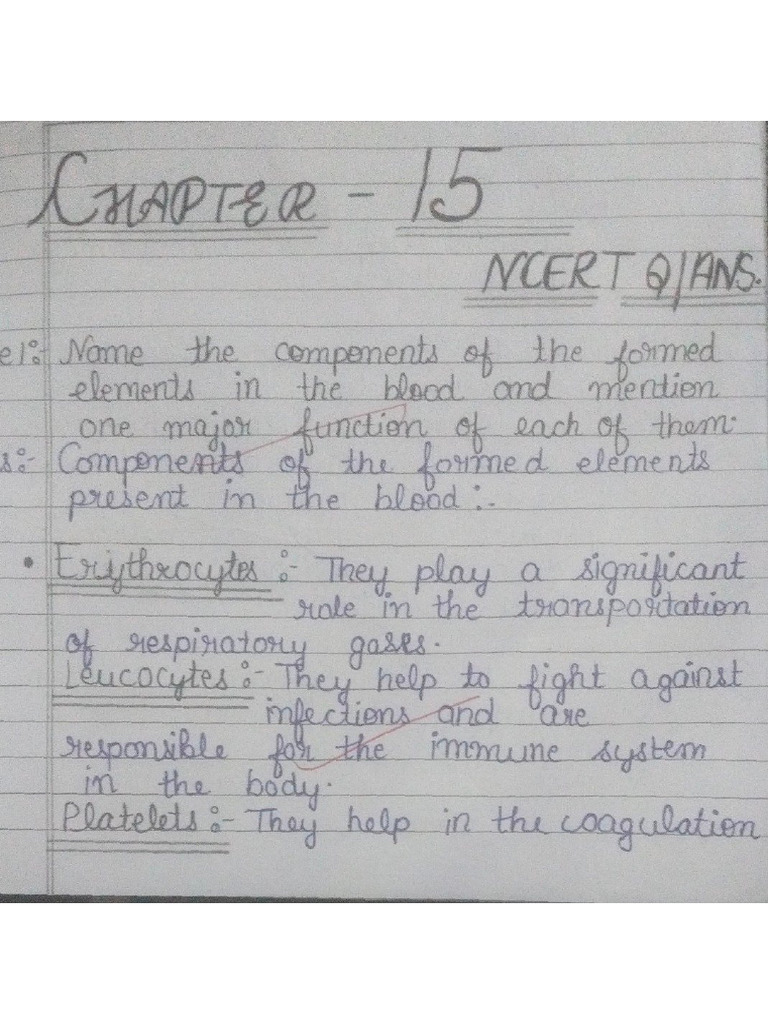 CHAPTER - 15
NCERT Q/ANS.
e1:- Name the components of the formed
elements in the blood and mention
one major function of each of them.
s:- Components of the formed elements
present in the blood :-
• Erythrocytes :- They play a significant
role in the transportation
of respiratory gases.
Leucocytes :- They help to fight against
infections and are
responsible for the immune system
in the body.
Platelets :- They help in the coagulation